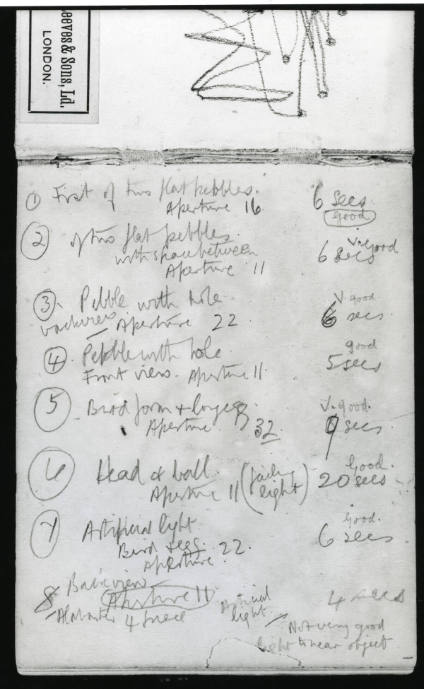 Reeves & Sons, Ld.
LONDON.
① First of two flat pebbles. 6 secs
Aperture 16 good
② of two flat pebbles. V. good
with space between 6 secs
Aperture 11
③ Pebble with hole V. good
Aperture 22 6 secs
④ Pebble with hole good
Front view. Aperture 11. 5 secs
⑤ Bird form & V. good.
Aperture 32 9 secs
⑥ Head & ball. Good.
Aperture 11 (failing light) 20 secs
⑦ Artificial light Good.
Bird & egg. 6 secs
Aperture 22.
8 Back view
Aperture 11 Artificial light 4 secs
Alabaster 4
Not very good
light to near object